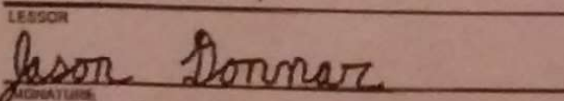 LESSOR
Jason Donnar
SIGNATURE